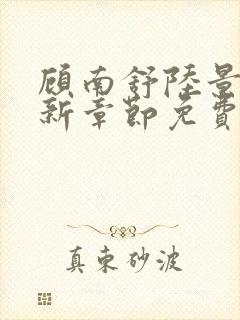 顾南舒陸景
新章節免費
真東砂波